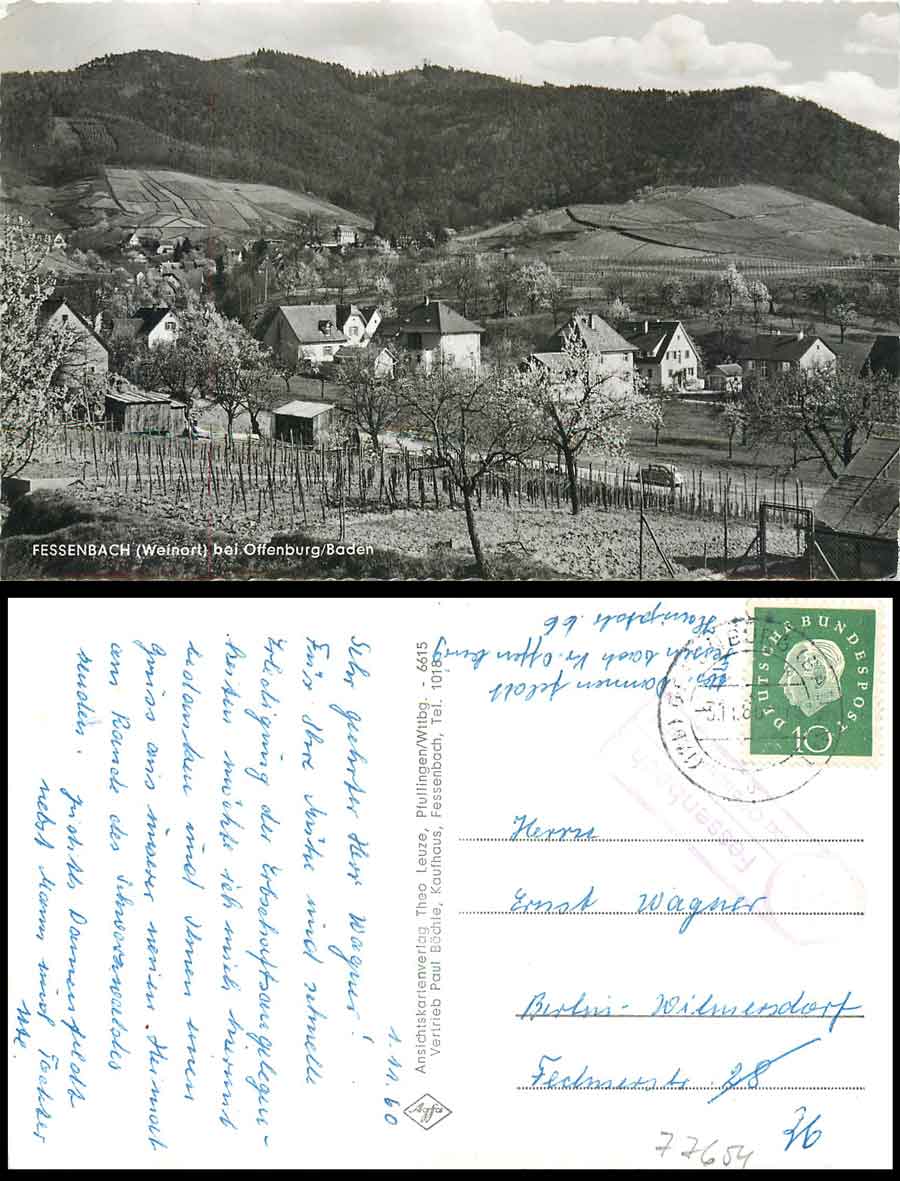 FESSENBACH (Weinort) bei Offenburg/Baden
1.11.60
Sehr geehrter Herr Wagner!
Für Ihre Mühe und schnelle
Erledigung der Erbschaftsangelegen-
heiten möchte ich mich hiermit
bedanken und Ihnen einen
Gruss aus unserer neuen Heimat
am Rande des Schwarzwaldes
senden.
Judith Dannenfeldt
nebst Mann und Tochter
Ute.
Ansichtskartenverlag Theo Leuze, Pfullingen/Wttbg. - 6615
Vertrieb Paul Bächle, Kaufhaus, Fessenbach, Tel. 1018
Agfa
Abs. Dannenfeldt
Fessenbach Kr. Offenburg
Hauptstr. 66
DEUTSCHE BUNDESPOST
10
Fessenbach
Herrn
Ernst Wagner
Berlin-Wilmersdorf
Fechnerstr. 28
77654